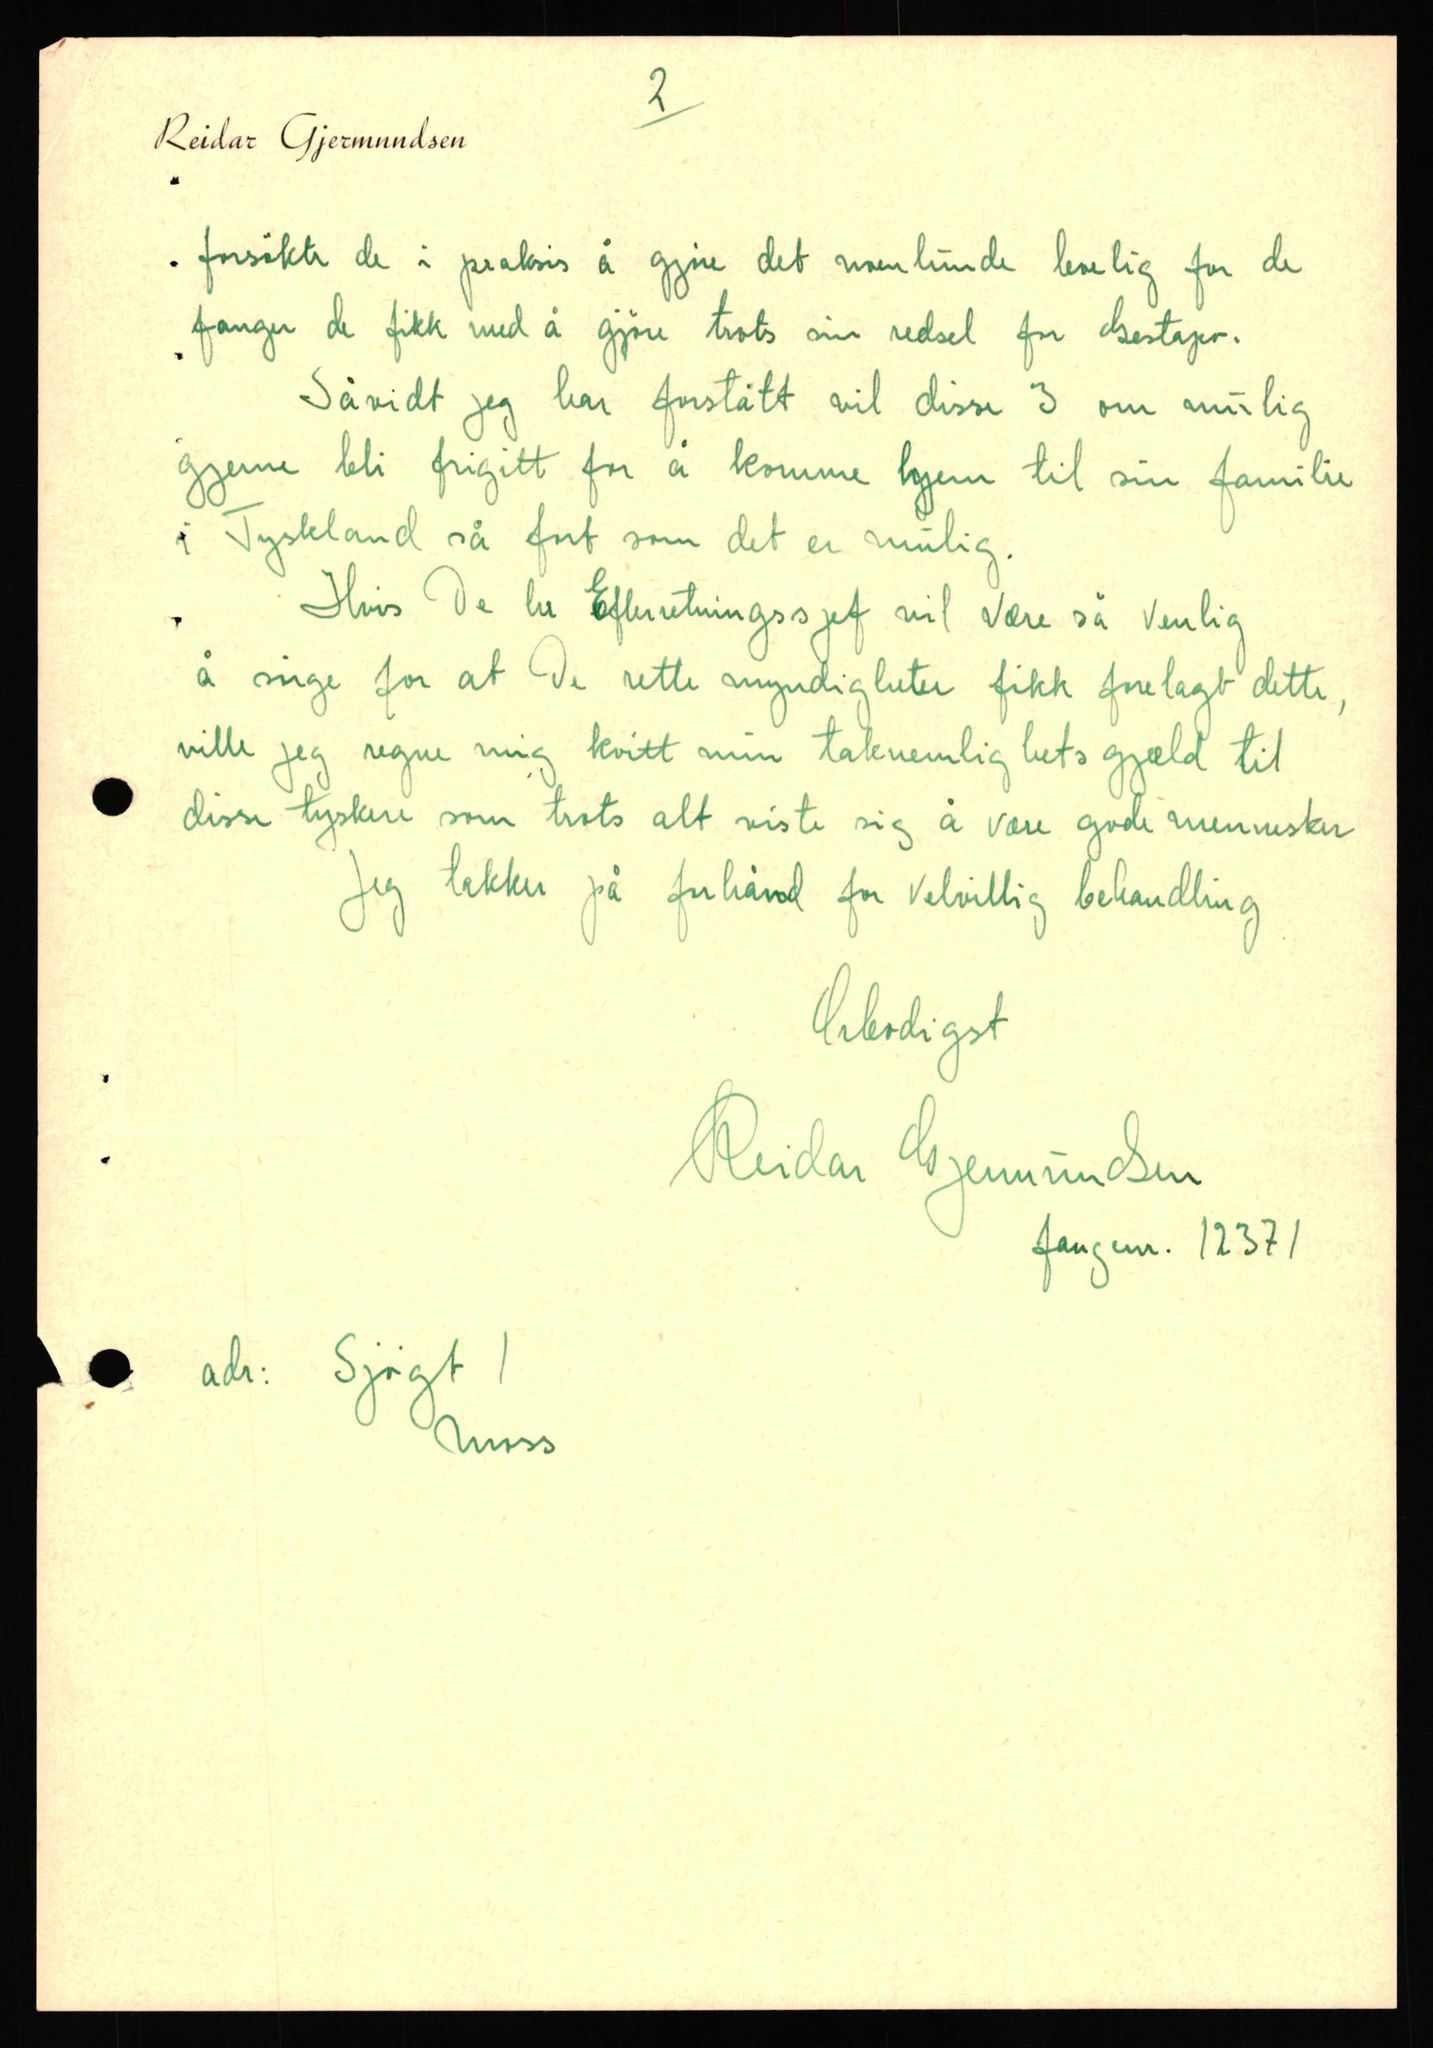 2
Reidar Gjermundsen
forsøkte de i praksis å gjøre det noenlunde levelig for de
fanger de fikk med å gjöre trots sin redsel for Gestapo.
Såvidt jeg har forstått vil disse 3 om mulig
gjerne bli frigitt for å komme hjem til sin familie
i Tyskland så fort som det er mulig.
Hvis De hr Efterretningssjef vil være så venlig
å sørge for at De rette myndigheter fikk forelagt dette,
ville jeg regne mig kvitt min taknemlighets gjæld til
disse tyskere som trots alt viste sig å være gode mennesker
Jeg takker på forhånd for velvillig behandling
Ærbødigst
Reidar Gjermundsen
fangenr. 12371
adr: Sjøgt 1
Moss